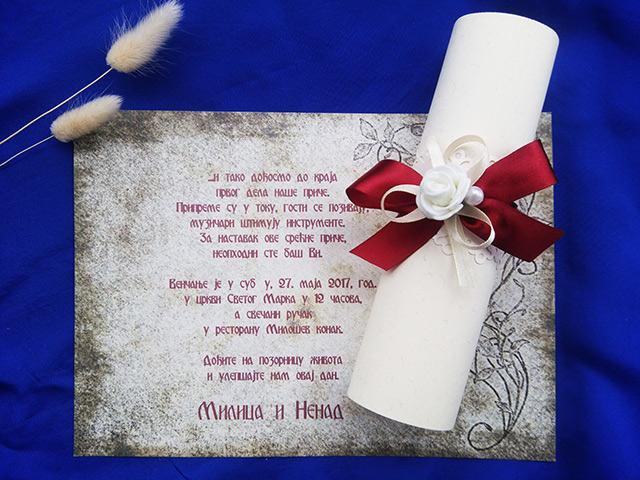 ...и тако дођосмо до краја
првог дела наше приче.
Припреме су у току, гости се позивају,
музичари штимују инструменте.
За наставак ове срећне приче,
неопходни сте баш Ви.
Венчање је у суб у, 27. маја 2017, год.
у цркви Светог Марка у 12 часова,
а свечани ручак
у ресторану Милошев конак.
Дођите на позорницу живота
и улепшајте нам овај дан.
Милица и Ненад